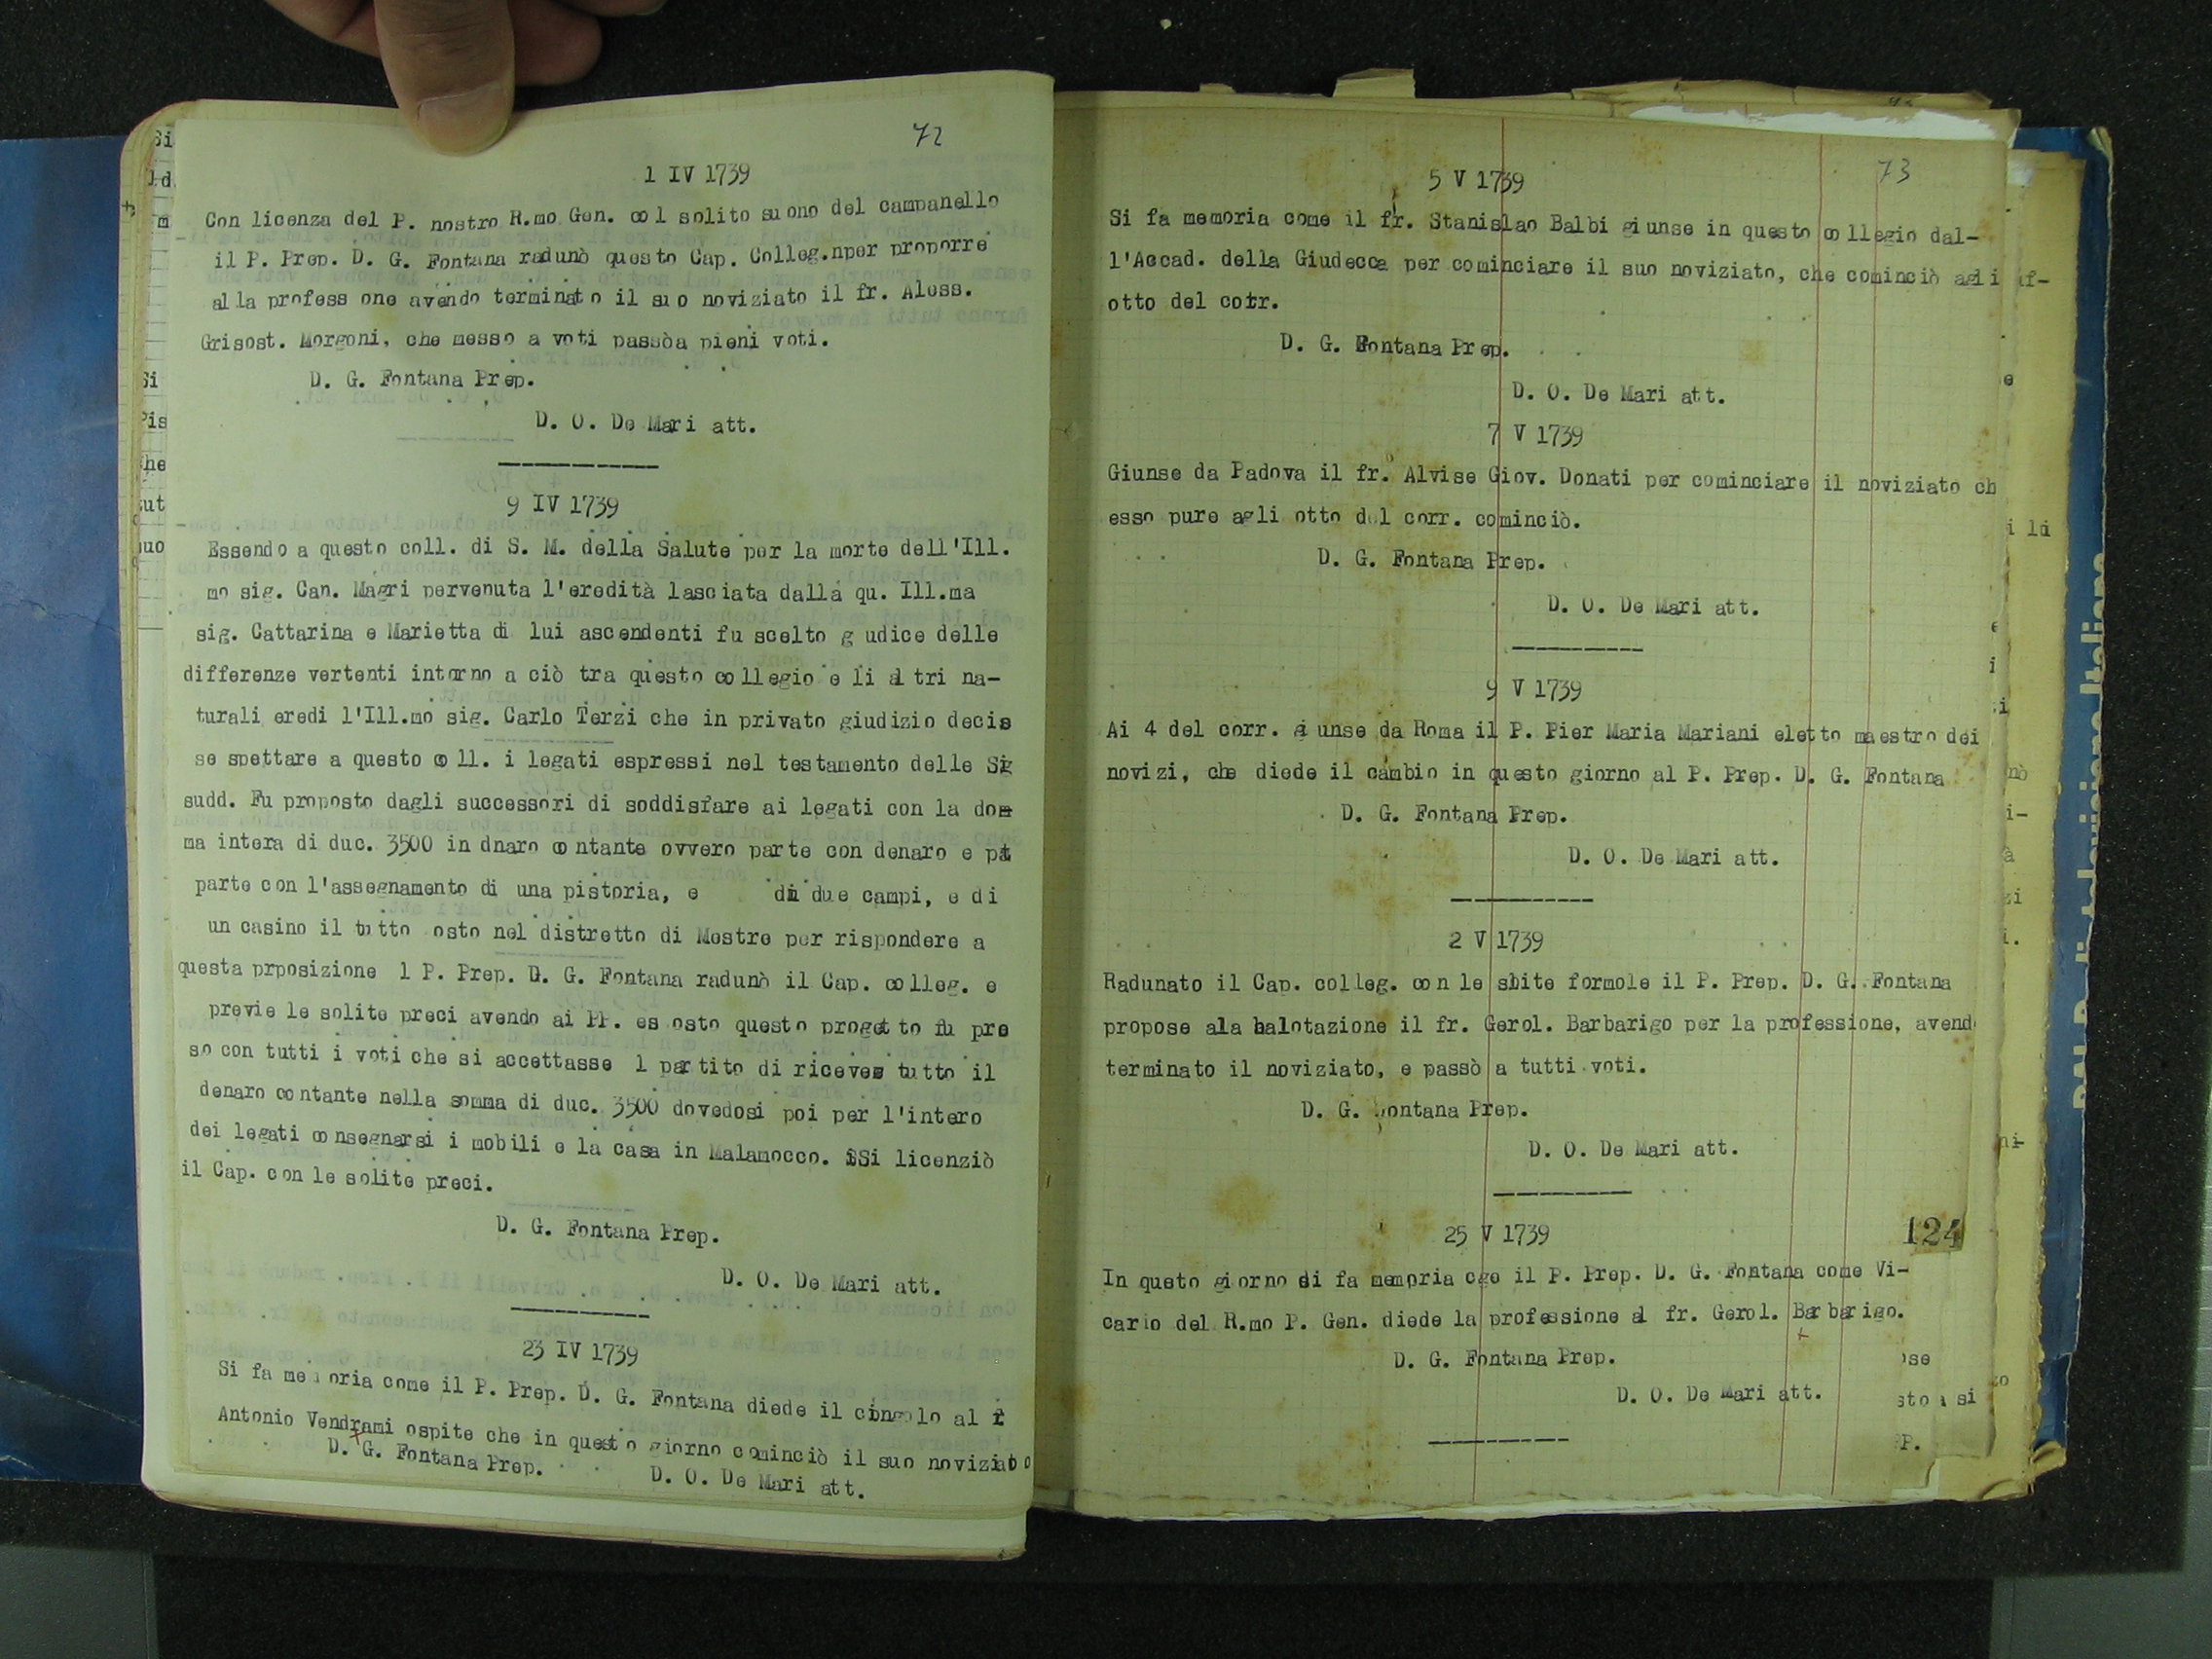 72
1 IV 1739
Con licenza del P. nostro R.mo Gen. col solito suono del campanello
il P. Prep. D. G. Fontana radunò questo Cap. Colleg.nper proporre
alla profess one avendo terminato il suo noviziato il fr. Aless.
Grisost. Morgoni, che messo a voti passòa pieni voti.
D. G. Fontana Prep.
D. O. De Mari att.
9 IV 1739
Essendo a questo coll. di S. M. della Salute per la morte dell'Ill.
mo sig. Can. Magri pervenuta l'eredità lasciata dalla qu. Ill.ma
sig. Cattarina e Marietta di lui ascendenti fu scelto g udice delle
differenze vertenti intorno a ciò tra questo collegio e li altri na-
turali eredi l'Ill.mo sig. Carlo Terzi che in privato giudizio decis
se spettare a questo coll. i legati espressi nel testamento delle Sig
sudd. Fu proposto dagli successori di soddisfare ai legati con la
ma intera di duc. 3500 in dnaro contante ovvero parte con denaro e
parte con l'assegnamento di una pistoria, e di due campi, e di
un casino il tutto osto nel distretto di Mestre per rispondere a
questa prposizione l P. Prep. D. G. Fontana radunò il Cap. colleg. e
previe le solite preci avendo ai PP. es osto questo progetto fu pre
so con tutti i voti che si accettasse l partito di riceves tutto il
denaro contante nella somma di duc. 3500 dovedosi poi per l'intero
dei legati consegnarsi i mobili e la casa in Malamocco. Si licenziò
il Cap. con le solite preci.
D. G. Fontana Prep.
D. O. De Mari att.
23 IV 1739
Si fa memoria come il P. Prep. D. G. Fontana diede il cingolo al f
Antonio Vendrami ospite che in questo giorno cominciò il suo noviziato
D. G. Fontana Prep.
D. O. De Mari att.
73
5 V 1739
Si fa memoria come il fr. Stanislao Balbi giunse in questo collegio dal-
l'Accad. della Giudecca per cominciare il suo noviziato, che cominciò agli
otto del cotr.
D. G. Fontana Prep.
D. O. De Mari att.
7 V 1739
Giunse da Padova il fr. Alvise Giov. Donati per cominciare il noviziato ch
esso pure agli otto del corr. cominciò.
D. G. Fontana Prep.
D. O. De Mari att.
9 V 1739
Ai 4 del corr. giunse da Roma il P. Pier Maria Mariani eletto maestro dei
novizi, che diede il cambio in questo giorno al P. Prep. D. G. Fontana
D. G. Fontana Prep.
D. O. De Mari att.
2 V 1739
Radunato il Cap. colleg. con le slite formole il P. Prep. D. G. Fontana
propose ala balotazione il fr. Gerol. Barbarigo per la professione, avend
terminato il noviziato, e passò a tutti voti.
D. G. Fontana Prep.
D. O. De Mari att.
25 V 1739
124
In queto giorno si fa memoria cge il P. Prep. D. G. Fontana come Vi-
cario del R.mo P. Gen. diede la professione al fr. Gerol. Barbarigo.
D. G. Fontana Prep.
D. O. De Mari att.